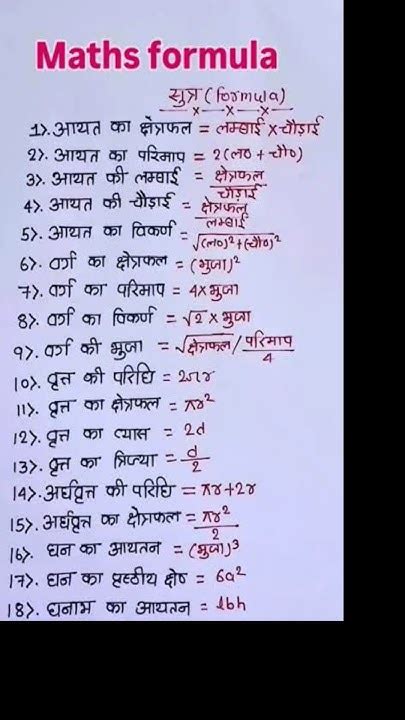 Maths formula
सुत्र (formula)
1). आयत का क्षेत्रफल = लम्बाई × चौड़ाई
2). आयत का परिमाप = 2(ल० + चौ०)
3). आयत की लम्बाई = क्षेत्रफल / चौड़ाई
4). आयत की चौड़ाई = क्षेत्रफल / लम्बाई
5). आयत का विकर्ण = √(ल०)² + (चौ०)²
6). वर्ग का क्षेत्रफल = (भुजा)²
7). वर्ग का परिमाप = 4 × भुजा
8). वर्ग का विकर्ण = √2 × भुजा
9). वर्ग की भुजा = √क्षेत्रफल / परिमाप / 4
10). वृत्त की परिधि = 2πr
11). वृत्त का क्षेत्रफल = πr²
12). वृत्त का व्यास = 2d
13). वृत्त का त्रिज्या = d / 2
14). अर्धवृत्त की परिधि = πr + 2r
15). अर्धवृत्त का क्षेत्रफल = πr² / 2
16). घन का आयतन = (भुजा)³
17). घन का पृष्ठीय क्षेष = 6a²
18). घनाभ का आयतन = lbh